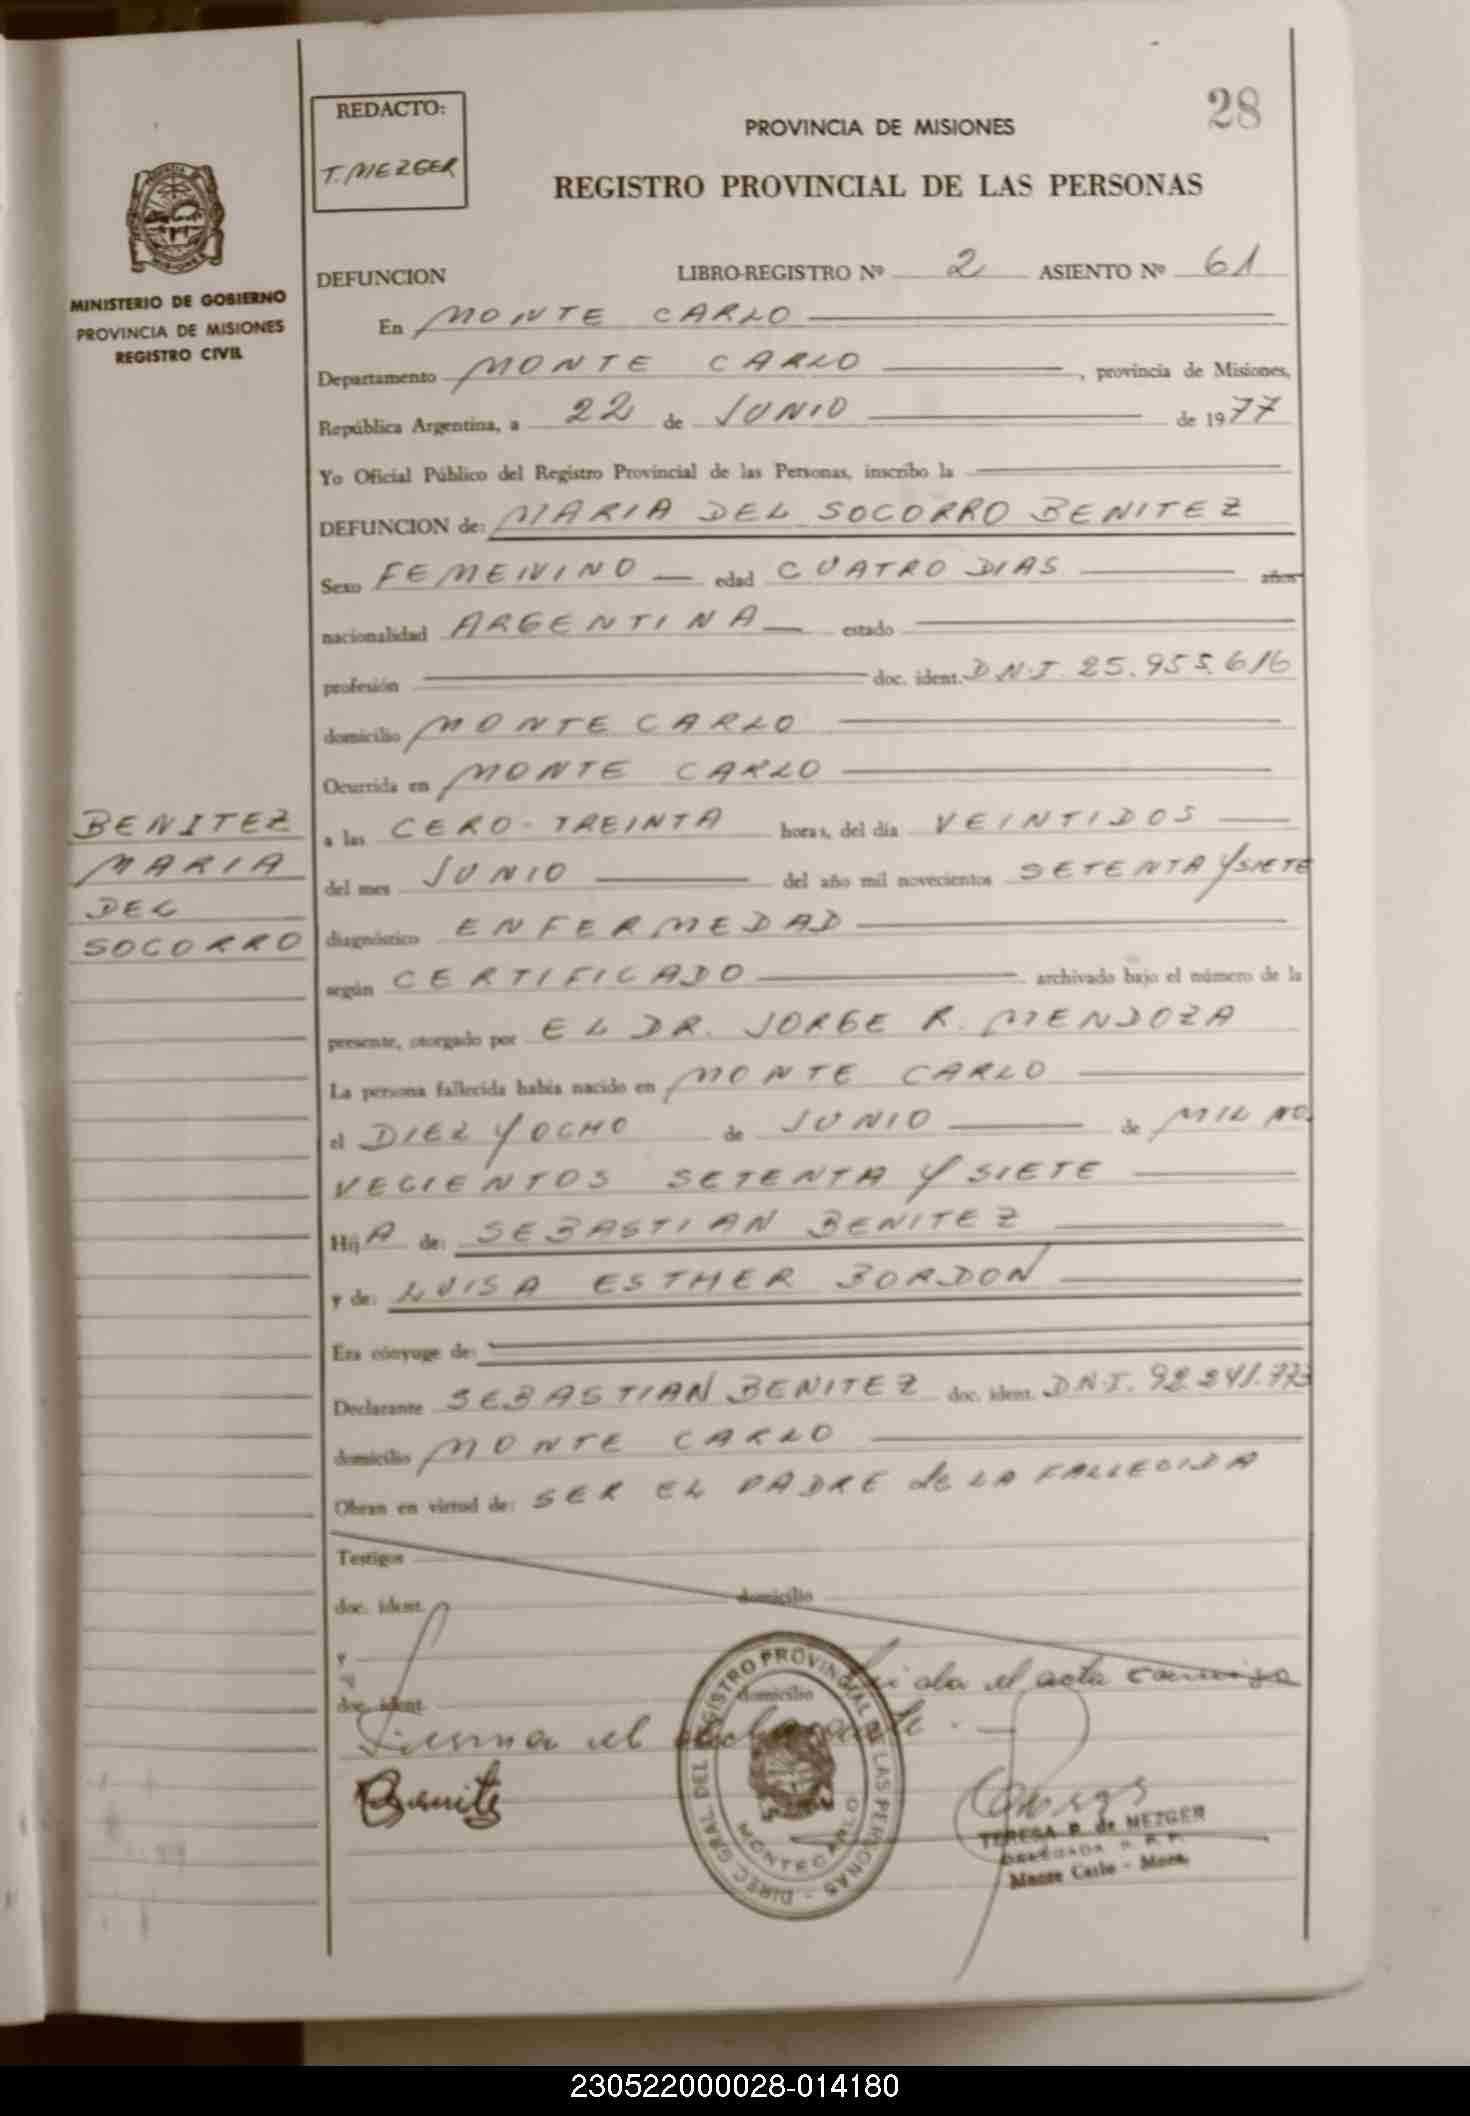 28
REDACTO:
T. MEZGER
PROVINCIA DE MISIONES
REGISTRO PROVINCIAL DE LAS PERSONAS
MINISTERIO DE GOBIERNO
PROVINCIA DE MISIONES
REGISTRO CIVIL
DEFUNCION LIBRO-REGISTRO Nº 2 ASIENTO Nº 61
En MONTE CARLO
Departamento MONTE CARLO, provincia de Misiones,
República Argentina, a 22 de JUNIO de 1977
Yo Oficial Público del Registro Provincial de las Personas, inscribo la
DEFUNCION de: MARIA DEL SOCORRO BENITEZ
Sexo FEMENINO edad CUATRO DIAS años
nacionalidad ARGENTINA estado
profesión doc. ident. D.N.I. 25.955.616
domicilio MONTE CARLO
Ocurrida en MONTE CARLO
BENITEZ
MARIA
DEL
SOCORRO
a las CERO-TREINTA horas, del día VEINTIDOS
del mes JUNIO del año mil novecientos SETENTA Y SIETE
diagnóstico ENFERMEDAD
según CERTIFICADO archivado bajo el número de la
presente, otorgado por EL DR. JORGE R. MENDOZA
La persona fallecida había nacido en MONTE CARLO
el DIEZ Y OCHO de JUNIO de MIL NO.
VECIENTOS SETENTA Y SIETE
Hij A de: SEBASTIAN BENITEZ
y de: LUISA ESTHER BORDON
Era cónyuge de:
Declarante SEBASTIAN BENITEZ doc. ident. D.N.I. 92.241.773
domicilio MONTE CARLO
Obran en virtud de: SER EL PADRE de LA FALLECIDA
Testigos
doc. ident. domicilio
y
doc. ident. domicilio
Leida el acta
Firma el declarante.
Benitez
DIREC. GRAL. DEL REGISTRO PROVINCIAL DE LAS PERSONAS
MONTECARLO
TERESA P. de MEZGER
DELEGADA R. P. P.
Monte Carlo - Mnes.
230522000028-014180